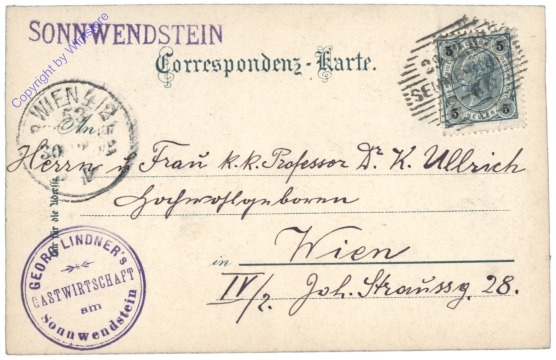 SONNWENDSTEIN
Copyright by Wiltshire
Correspondenz-Karte.
WIEN 4/2
53
An
Herrn u Frau k.k. Professor Dr K. Ullrich
Hochwohlgeboren
in Wien
IV/2. Joh. Straussg. 28.
Nur für die Adresse
GEORG LINDNER'S
GASTWIRTSCHAFT
am
Sonnwendstein
5 5
5 5